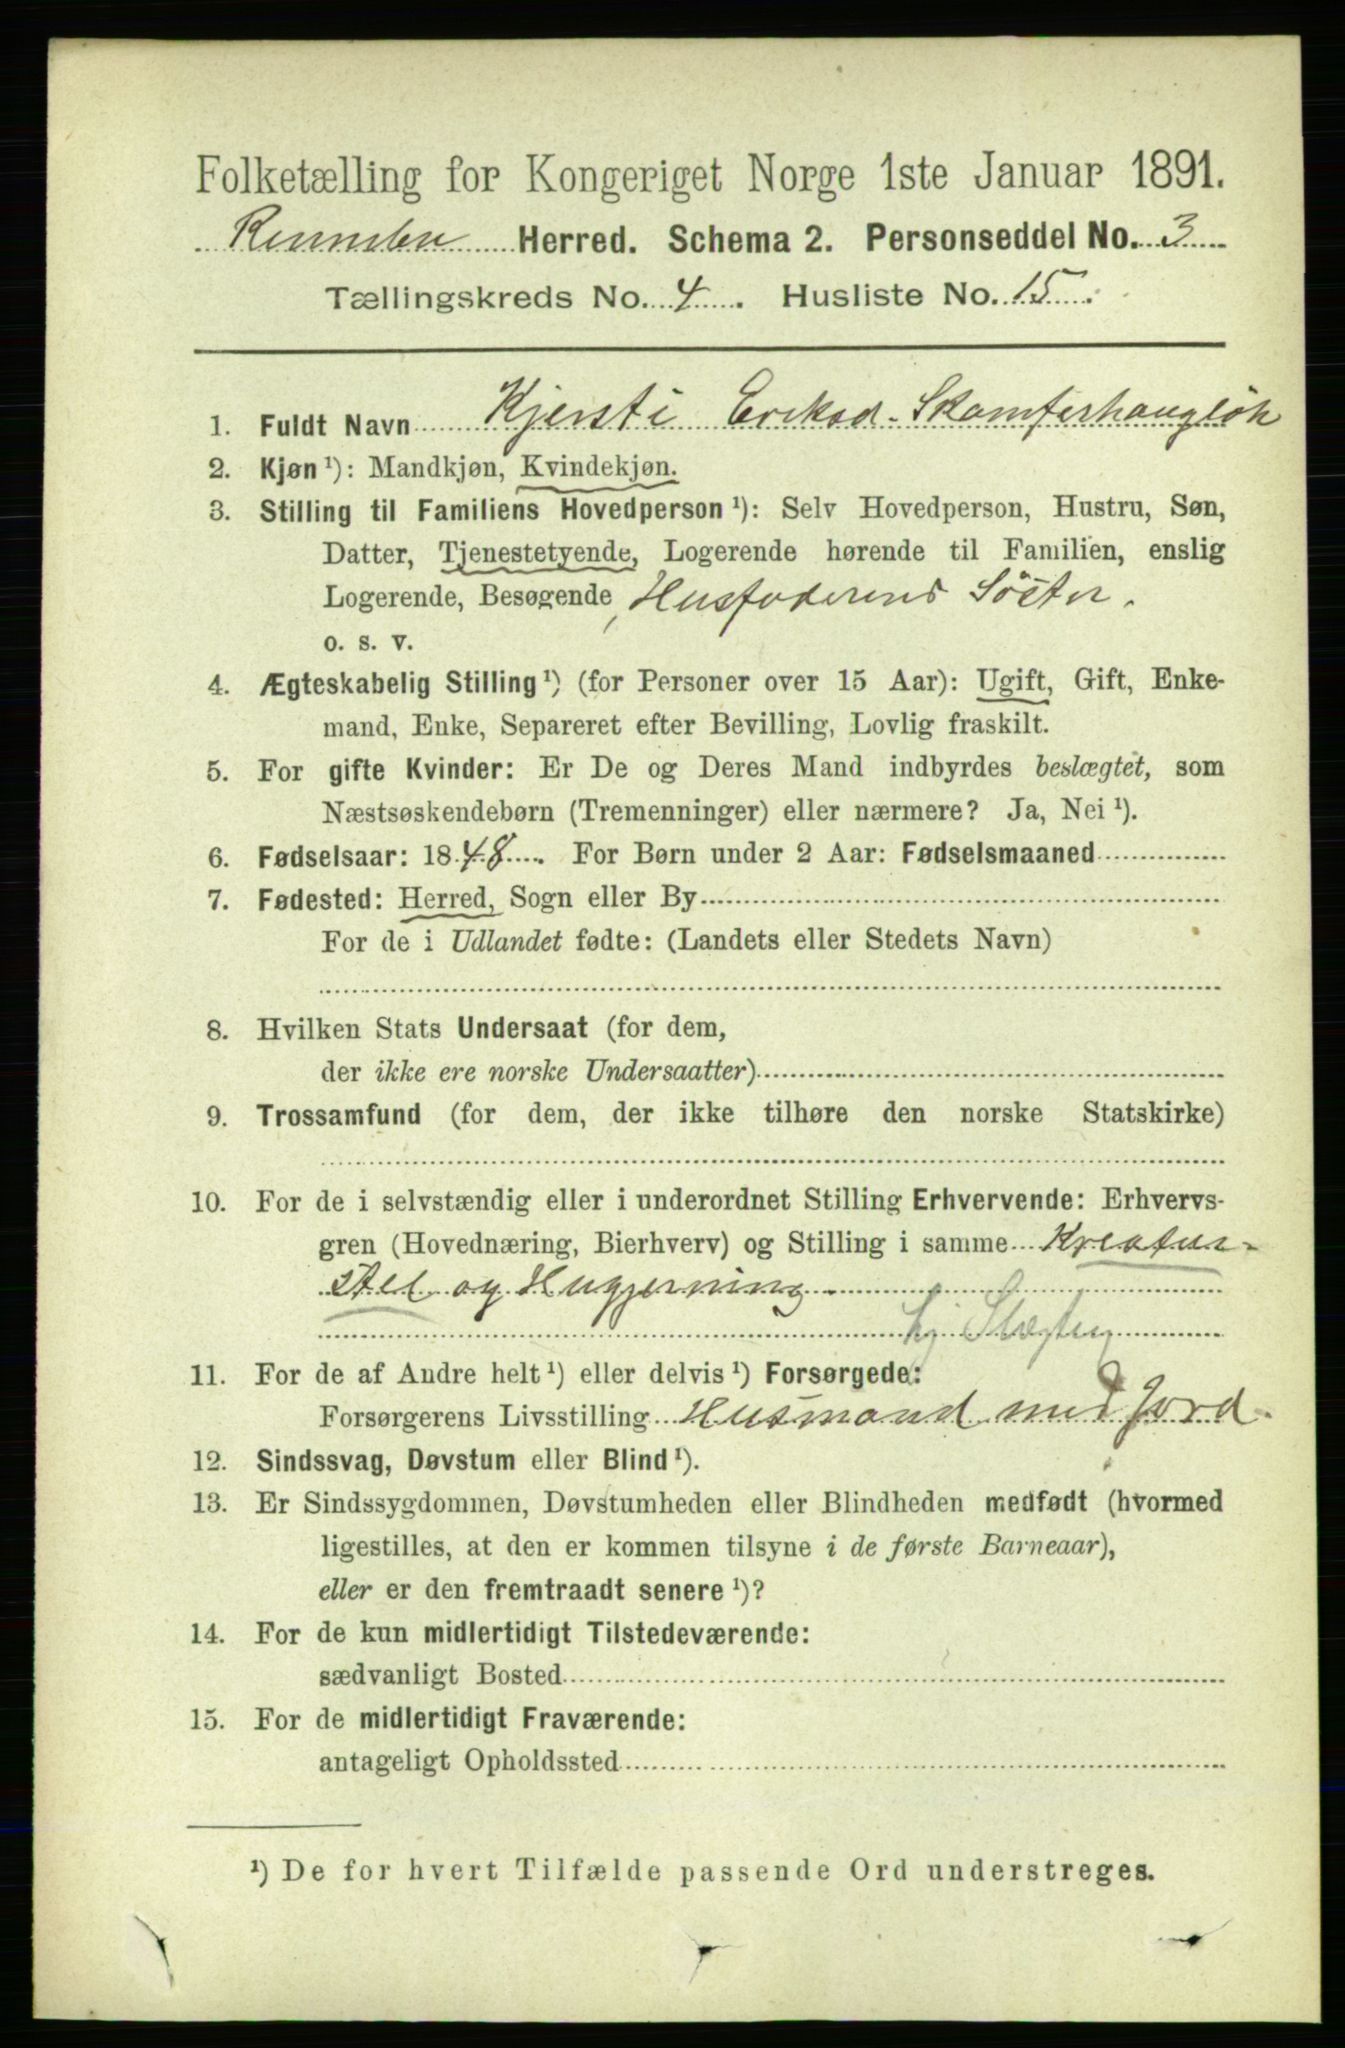 Folketælling for Kongeriget Norge 1ste Januar 1891.
Rennebu Herred. Schema 2. Personseddel No. 3
Tællingskreds No. 4. Husliste No. 15.
1. Fuldt Navn Kjersti Eriksd. Skamferhaugløk
2. Kjøn ¹): Mandkjøn, Kvindekjøn.
3. Stilling til Familiens Hovedperson ¹): Selv Hovedperson, Hustru, Søn,
Datter, Tjenestetyende, Logerende hørende til Familien, enslig
Logerende, Besøgende, Husfaderens Søster.
o. s. v.
4. Ægteskabelig Stilling ¹) (for Personer over 15 Aar): Ugift, Gift, Enke-
mand, Enke, Separeret efter Bevilling, Lovlig fraskilt.
5. For gifte Kvinder: Er De og Deres Mand indbyrdes beslægtet, som
Næstsøskendebørn (Tremenninger) eller nærmere? Ja, Nei ¹).
6. Fødselsaar: 1848. For Børn under 2 Aar: Fødselsmaaned
7. Fødested: Herred, Sogn eller By
For de i Udlandet fødte: (Landets eller Stedets Navn)
8. Hvilken Stats Undersaat (for dem,
der ikke ere norske Undersaatter)
9. Trossamfund (for dem, der ikke tilhøre den norske Statskirke)
10. For de i selvstændig eller i underordnet Stilling Erhvervende: Erhvervs-
gren (Hovednæring, Bierhverv) og Stilling i samme Kreatur-
stel og Husgjerning.
hj Slægtning
11. For de af Andre helt ¹) eller delvis ¹) Forsørgede:
Forsørgerens Livsstilling Husmand med Jord.
12. Sindssvag, Døvstum eller Blind ¹).
13. Er Sindssygdommen, Døvstumheden eller Blindheden medfødt (hvormed
ligestilles, at den er kommen tilsyne i de første Barneaar),
eller er den fremtraadt senere ¹)?
14. For de kun midlertidigt Tilstedeværende:
sædvanligt Bosted
15. For de midlertidigt Fraværende:
antageligt Opholdssted
¹) De for hvert Tilfælde passende Ord understreges.